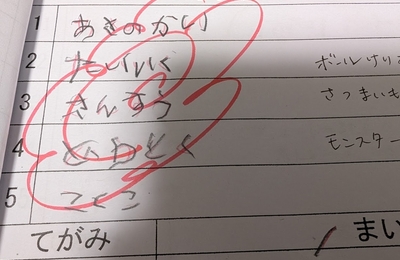 1 あきのかい
2 たいいく ボールけり
3 さんすう さつまいも
4 どうとく モンスター
5 こくご
てがみ まい